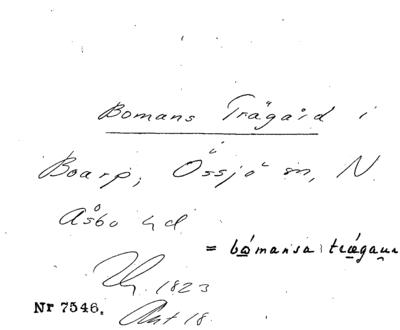 Bomans Trägård i
Boarp, Össjö sn, N.
Åsbo hd
= bómansa trǽgaṇ
1823
Nr 7546. Akt 18.